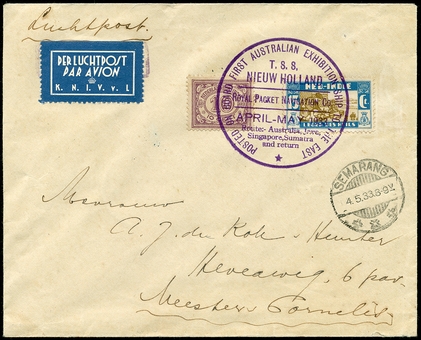 Luchtpost.
PER LUCHTPOST
PAR AVION
K. N. I. V. v. L
POSTED ON BOARD FIRST AUSTRALIAN EXHIBITION SHIP TO THE EAST
T. S. S.
NIEUW HOLLAND
ROYAL PACKET NAVIGATION Co.
APRIL-MAY
Route:- Australia, Java,
Singapore, Sumatra
and return
NED-INDIE
SEMARANG
4.5.33.8-9V.
Mevrouw
A. J. de Kok - Hunter
Heveaweg, 6 par.
Meester Cornelis